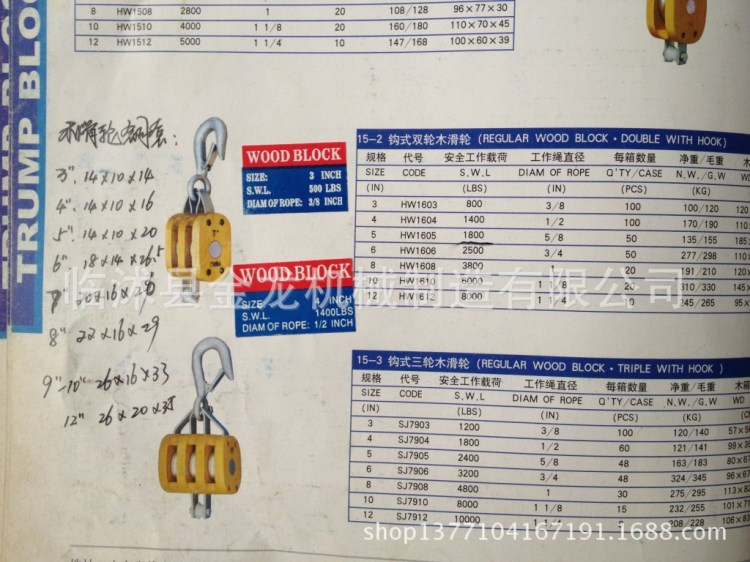 8 HW1508 2800 1 20 108/128 96×77×30
10 HW1510 4000 1 1/8 20 160/180 110×70×45
12 HW1512 5000 1 1/4 10 147/168 100×60×39
TRUMP BLO
木滑轮铜套:
3" 14×10×14
4" 14×10×16
5" 14×10×20
6" 18×14×26.5
8" 22×16×29
9"-10" 26×16×33
12" 26×20×35
WOOD BLOCK
SIZE: 3 INCH
S.W.L. 500 LBS
DIAM OF ROPE: 3/8 INCH
WOOD BLOCK
SIZE: 4 INCH
S.W.L. 1400LBS
DIAM OF ROPE: 1/2 INCH
15-2 钩式双轮木滑轮 (REGULAR WOOD BLOCK·DOUBLE WITH HOOK)
规格 代号 安全工作载荷 工作绳直径 每箱数量 净重/毛重 木
SIZE CODE S,W,L DIAM OF ROPE Q'TY/CASE N,W,/G,W WD
(IN) (LBS) (IN) (PCS) (KG)
3 HW1603 800 3/8 100 100/120 120
4 HW1604 1400 1/2 100 170/190 110
5 HW1605 1800 5/8 50 135/155 185
6 HW1606 2500 3/4 50 277/298 110
8 HW1608 3800 1 20 191/210 120
10 HW1610 6000 1 1/8 20 310/330 145
12 HW1612 8000 1 1/4 10 245/265 95×
临沭县金龙机械制造有限公司
15-3 钩式三轮木滑轮 (REGULAR WOOD BLOCK·TRIPLE WITH HOOK)
规格 代号 安全工作载荷 工作绳直径 每箱数量 净重/毛重 木箱
SIZE CODE S,W,L DIAM OF ROPE Q'TY/CASE N,W,/G,W WD
(IN) (LBS) (IN) (PCS) (KG)
3 SJ7903 1200 3/8 100 120/140 57×5
4 SJ7904 1800 1/2 60 121/141 99×3
5 SJ7905 2400 5/8 48 163/183 80×6
6 SJ7906 3200 3/4 48 324/345 96×6
8 SJ7908 4800 1 30 275/295 113×8
10 SJ7910 8000 1 1/8 15 232/255 101×7
12 SJ7912 10000 1 1/4 208/228 106×8
shop1377104167191.1688.com